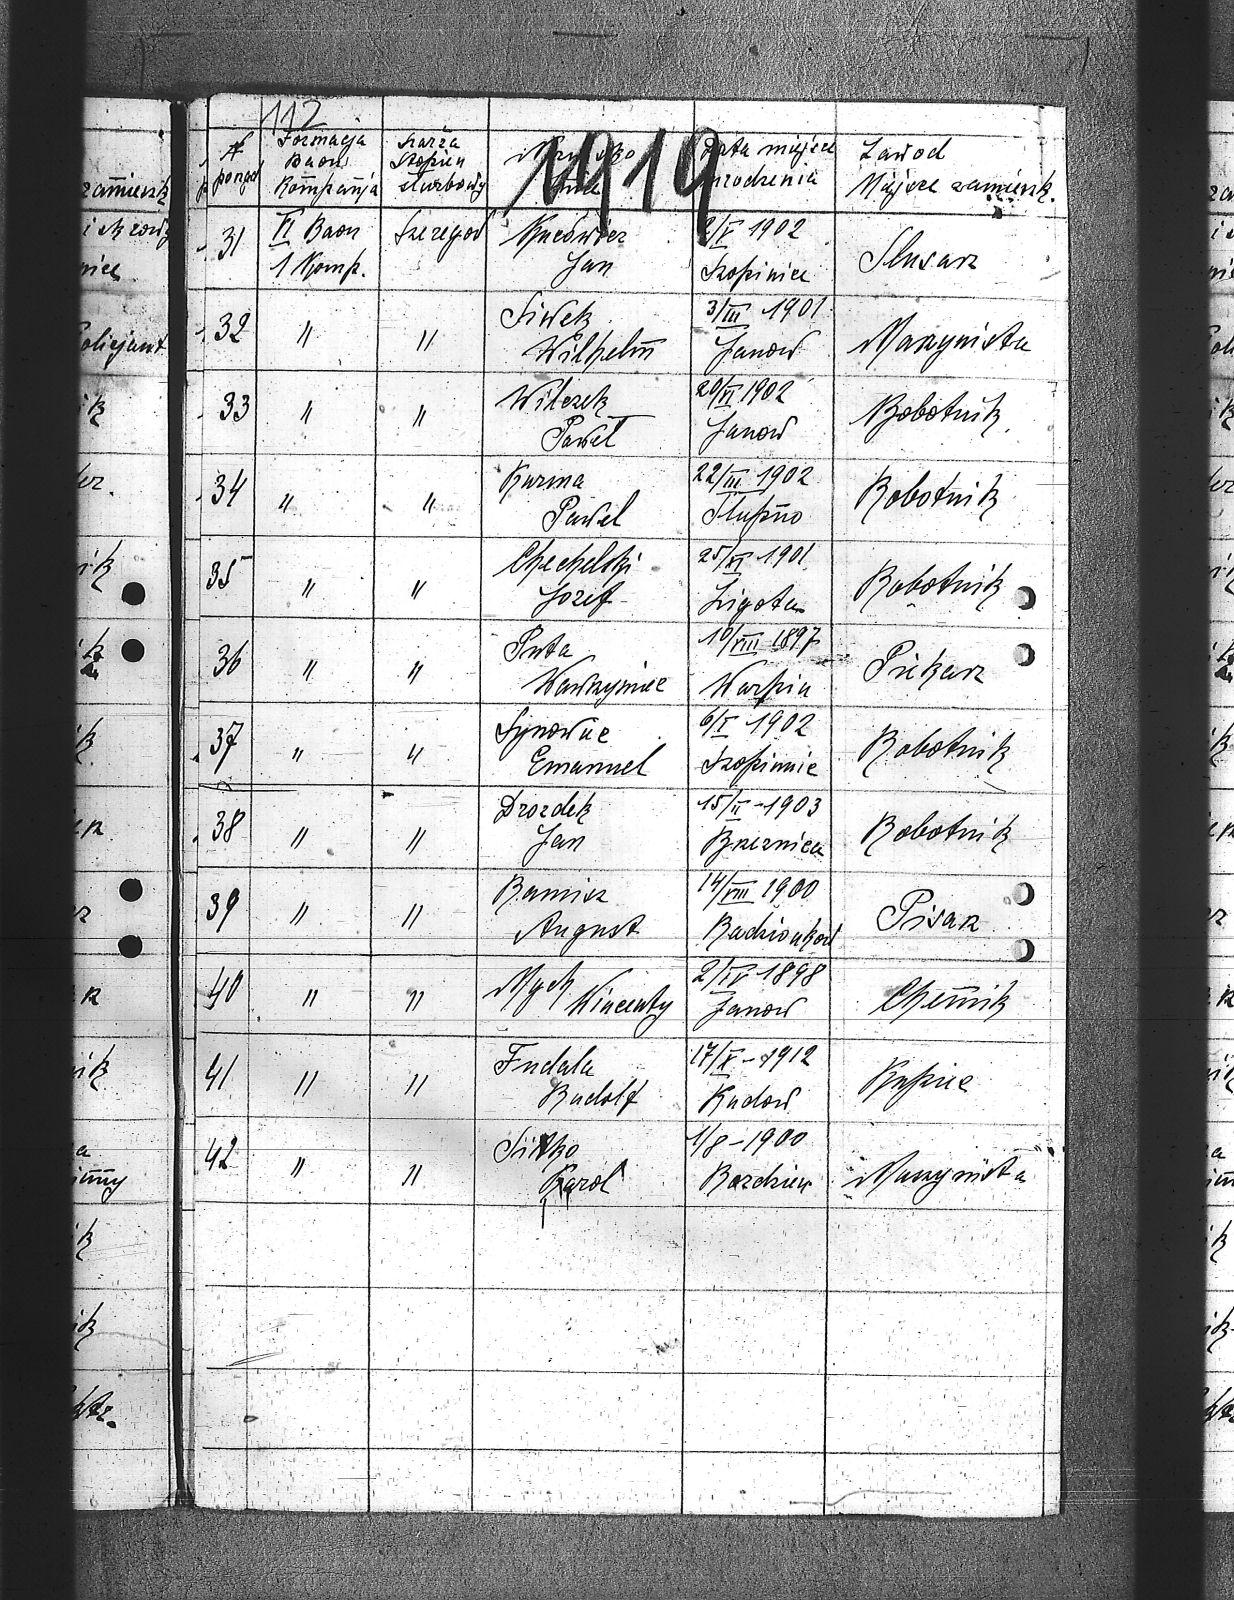 112
1919
№ porząd
Formacja Baon Kompanja
Szarża Stopień służbowy
Data miejsce urodzenia
Zawod Miejsce zamieszk.
31 VI Baon 1 Komp. Szeregow Jan 2/V 1902 Szopinice Slusarz
32 " " Siwek Wilhelm 3/III 1901 Janow Maszynista
33 " " Wilczek Paweł 20/VI 1902 Janow Robotnik
34 " " Kurma Paweł 22/III 1902 Słupno Robotnik
35 " " Chechelski Jozef 25/VI 1901 Ligota Robotnik
36 " " Puta Wawrzyniec 10/VIII 1897 Warpia Piekarz
37 " " Synowiec Emanuel 6/I 1902 Szopinice Robotnik
38 " " Drozdek Jan 15/II - 1903 Brzeznica Robotnik
39 " " August 14/VIII 1900 Radzionkow Pisarz
40 " " Mych Wincenty 2/IV 1898 Janow Chemik
41 " " Fudala Rudolf 17/X - 1912 Kupiec
42 " " Karol 1/8 - 1900 Maszynista